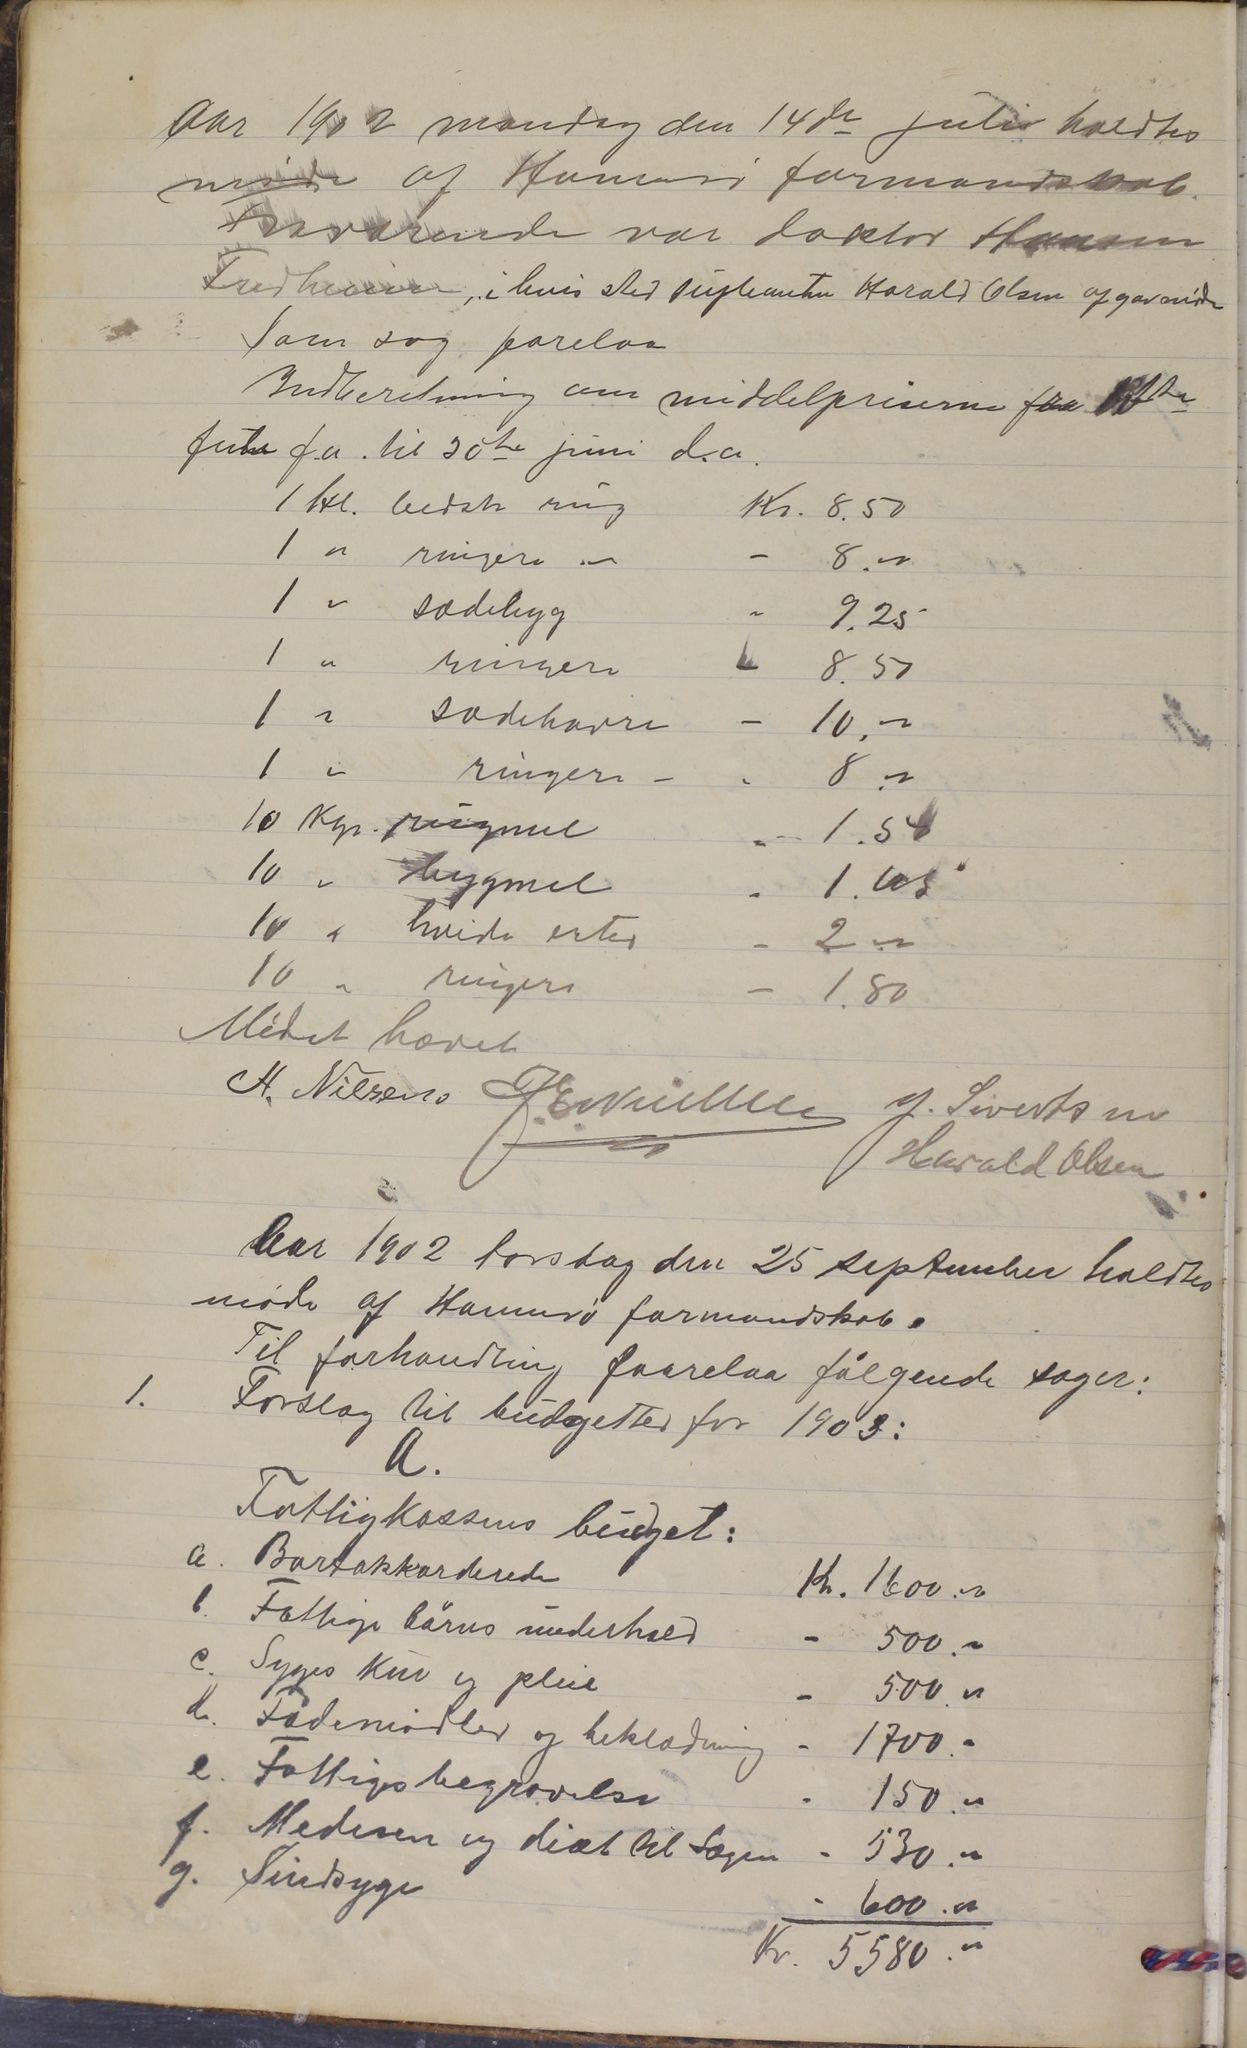 Aar 1902 mandag den 14de juli holdtes
møde af Hammerø formandskab.
Fraværende var doktor
Fredheim, i hvis sted Harald Olsen afgav møde
Som sag forelaa
Indberetning om middelpriserne fra
f.a. til 30te juni d.a.
1 Hl. bedste rug Kr. 8.50
1 " ringere " - 8."
1 " sædebyg " 9.25
1 " ringere 8.50
1 " sædehavre - 10."
1 " ringere - " 8."
10 Kgr. rugmel " 1.54
10 " bygmel " 1.65
10 " hvide erter - 2 "
10 " ringere - 1.80
Mødet hævet
H. Nilsen J. Sivertsen
Harald Olsen
Aar 1902 torsdag den 25 september holdtes
møde af Hammerø formandskab.
Til forhandling foorelaa følgende sager:
1. Forslag til budgetter for 1903:
A.
Fattigkassens budget:
a. Bortakkorderede Kr. 1600."
b. Fattige børns underhold - 500."
c. Syges kur og pleie - 500."
d. Fødemidler og beklædning - 1700."
e. Fattiges begravelse - 150."
f. Medesen og diæt til Lægen - 530."
g. Sindsyge - 600."
Kr. 5580."